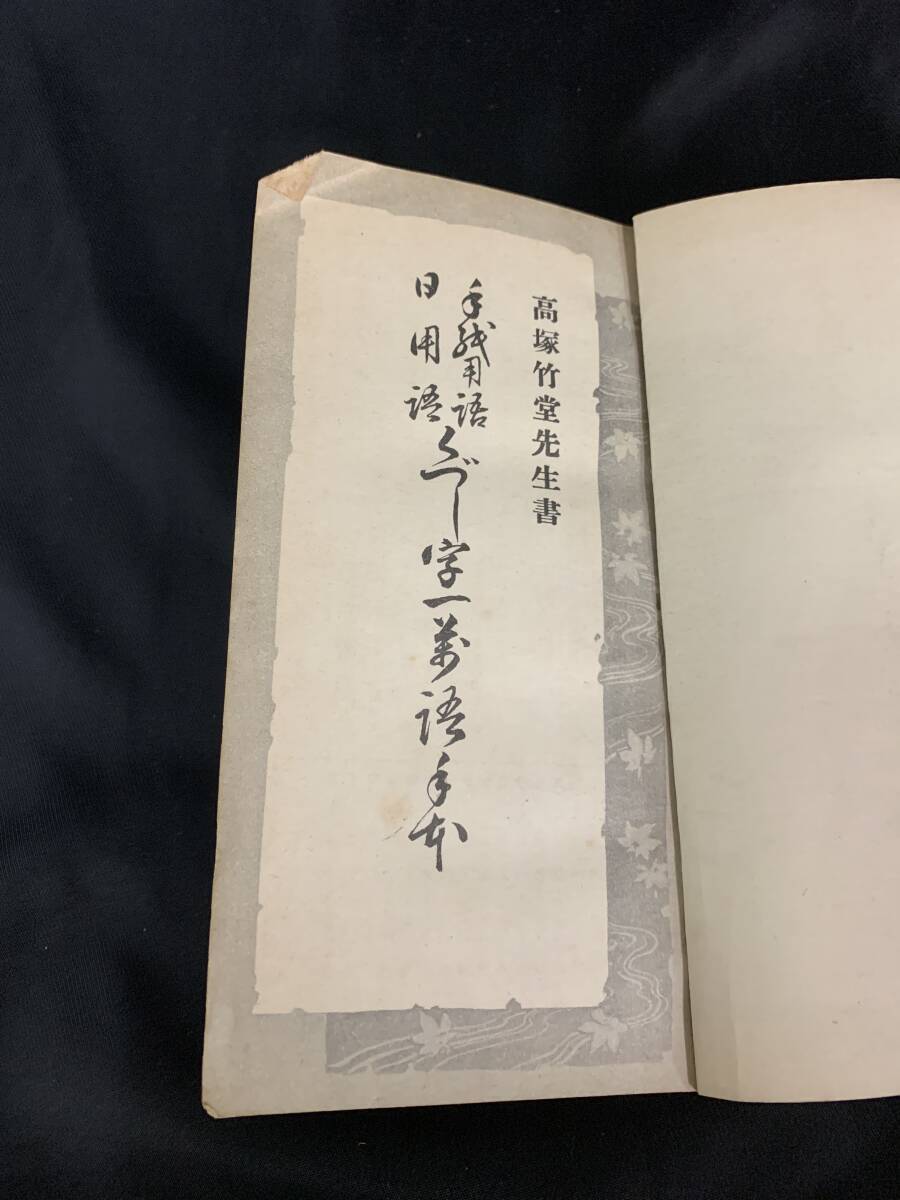 高塚竹堂先生書
手紙用語
日用語
くづし字一萬語手本